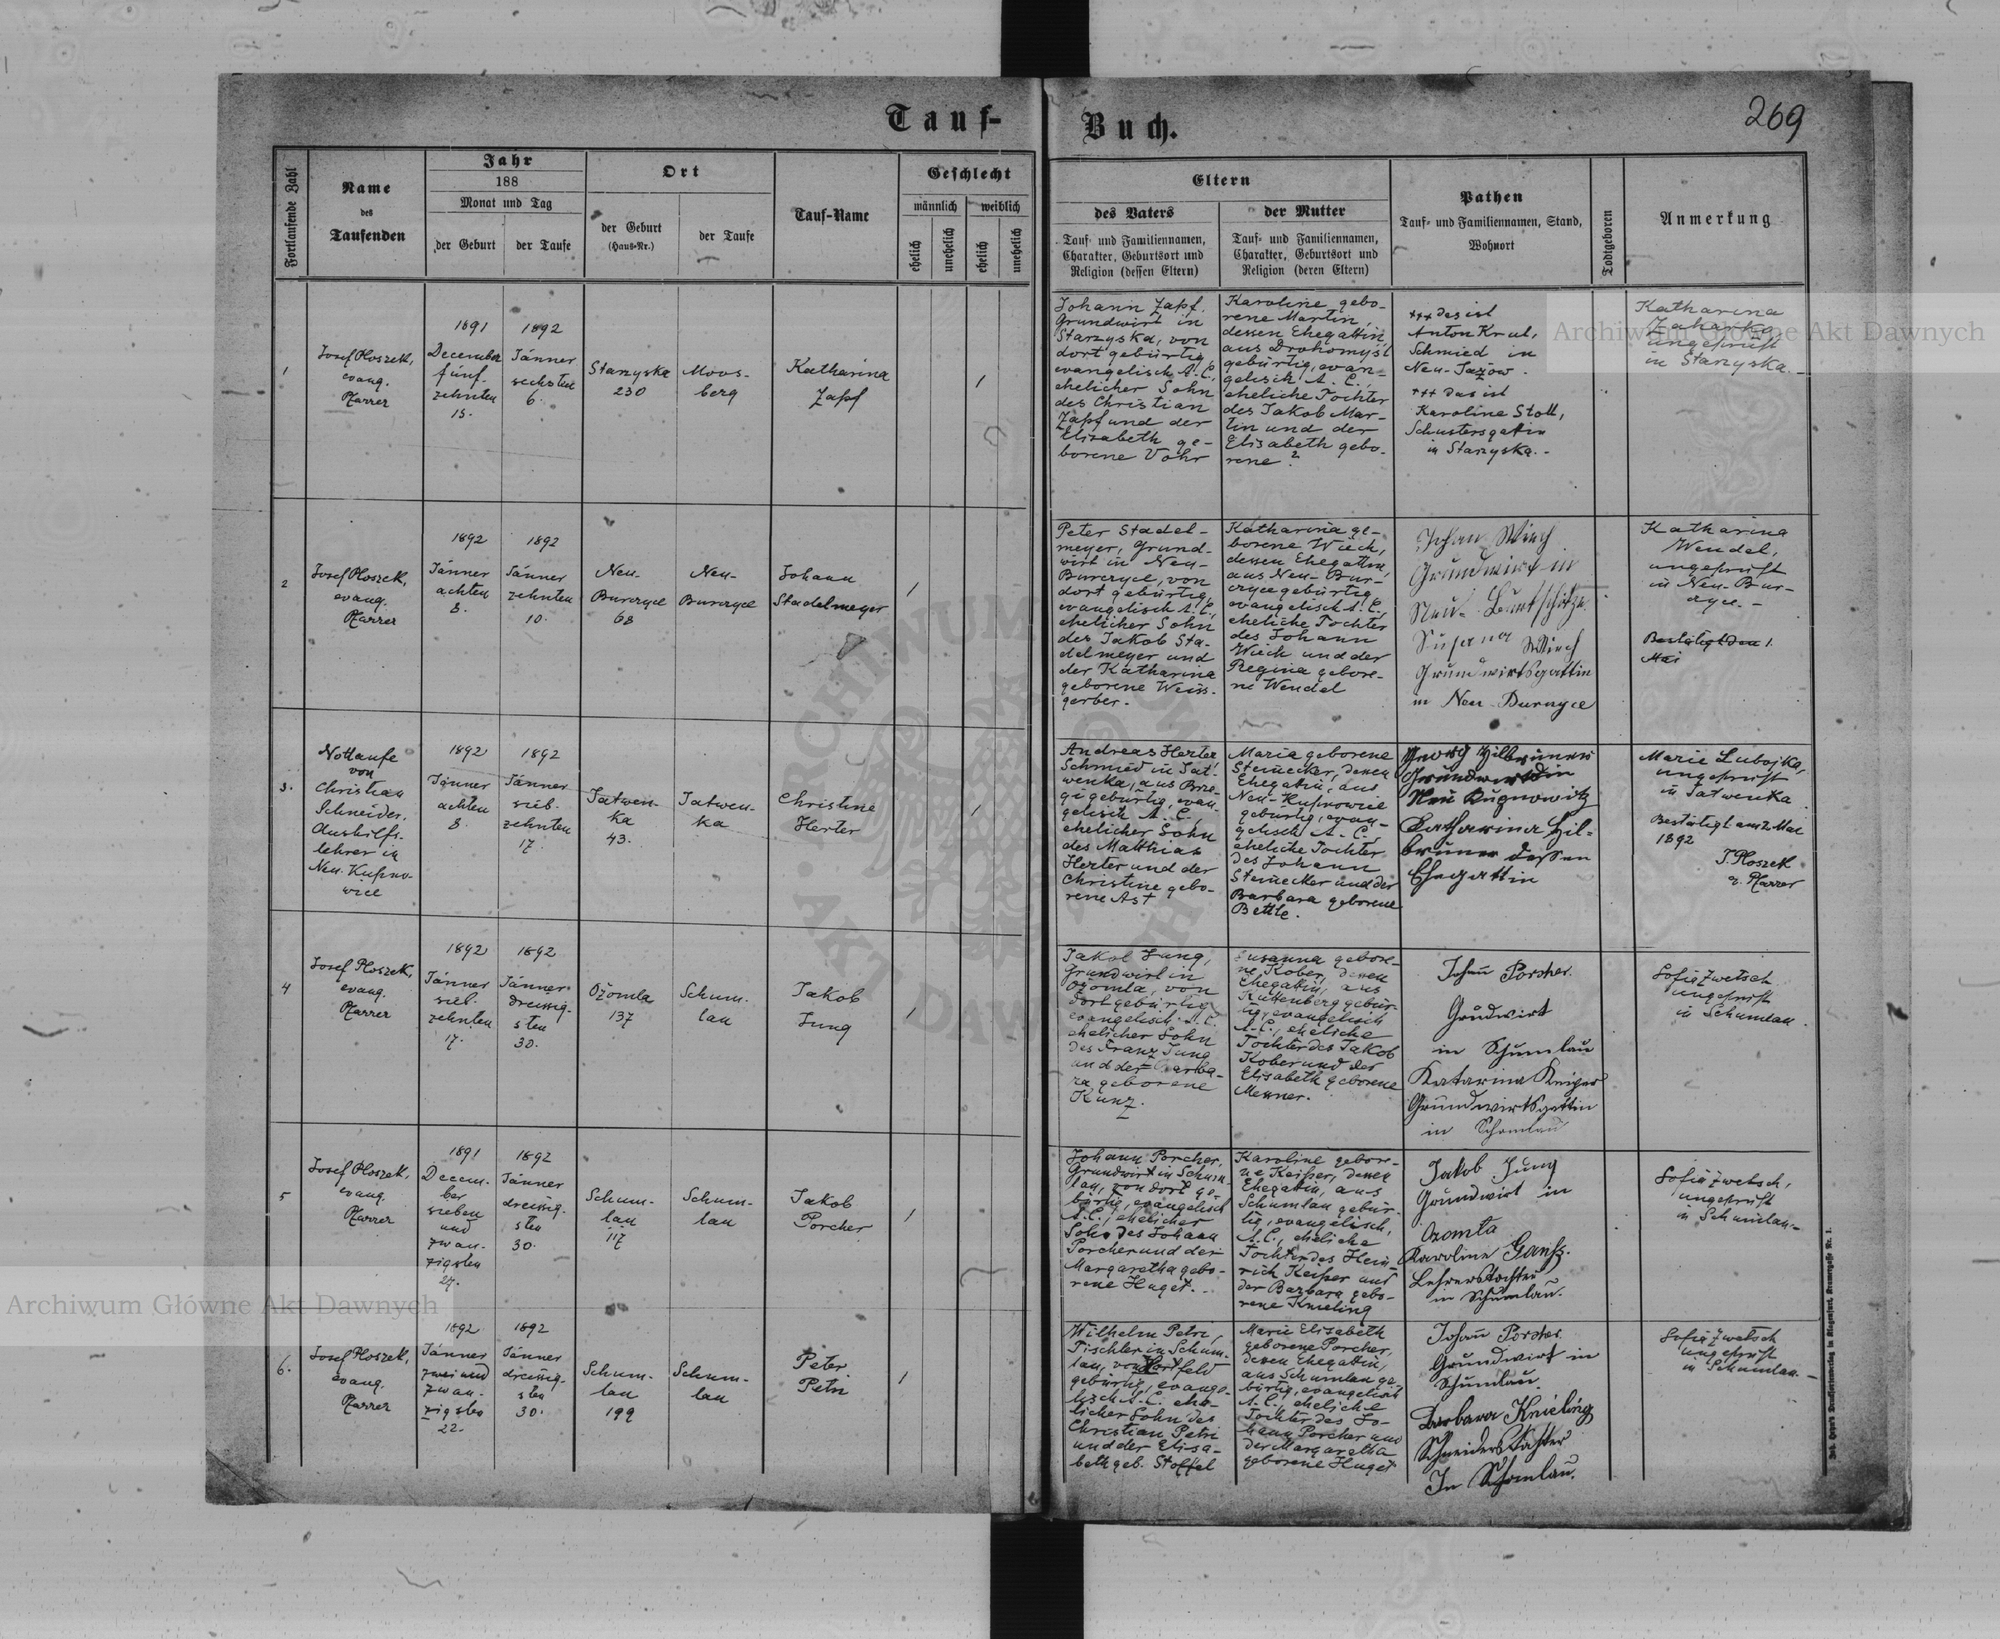 Tauf-
Buch.
269
Fortlaufende Zahl
Name
des
Taufenden
Jahr
188
Monat und Tag
der Geburt
der Taufe
Ort
der Geburt
(Haus-Nr.)
der Taufe
Tauf-Name
Geschlecht
männlich
weiblich
ehelich
unehelich
ehelich
unehelich
Eltern
des Vaters
Tauf- und Familiennamen,
Charakter, Geburtsort und
Religion (dessen Eltern)
der Mutter
Tauf- und Familiennamen,
Charakter, Geburtsort und
Religion (deren Eltern)
Pathen
Tauf- und Familiennamen, Stand,
Wohnort
Todtgeboren
Anmerkung
1
Josef Ploszek,
evang.
Pfarrer
1891
December
fünf-
zehnten
15.
1892
Jänner
sechsten
6.
Starzyska
230
Moos-
berg
Katharina
Zapf
1
Johann Zapf,
Grundwirt in
Starzyska, von
dort gebürtig,
evangelisch A. C.,
ehelicher Sohn
des Christian
Zapf und der
Elisabeth ge-
borene Vohr
Karoline gebo-
rene Martin,
dessen Ehegattin,
aus Drohomysl
gebürtig, evan-
gelisch A. C.,
eheliche Tochter
des Jakob Mar-
tin und der
Elisabeth gebo-
rene ?
+++ das ist
Anton Krul,
Schmied in
Neu-Jazow.
+++ das ist
Karoline Stoll,
Schustersgattin
in Starzyska. -
Katharina
ungeprüft
in Starzyska. -
2
Josef Ploszek,
evang.
Pfarrer
1892
Jänner
achten
8.
1892
Jänner
zehnten
10.
Neu-
Burczyce
68
Neu-
Burczyce
Johann
Stadelmeyer
1
Peter Stadel-
meyer, Grund-
wirt in Neu-
Burczyce, von
dort gebürtig,
evangelisch A. C.,
ehelicher Sohn
des Jakob Sta-
delmeyer und
der Katharina
geborene Weiss-
gerber. -
Katharina ge-
borene Wiech,
dessen Ehegattin,
aus Neu-Bur-
czyce gebürtig,
evangelisch A. C.,
eheliche Tochter
des Johann
Wiech und der
Regina gebore-
ne Wendel
Johan Wiech
Grundwirt in
Neu-
Susana Wiech
Grundwirtsgattin
in Neu Burczyce
Katharina
Wendel,
ungeprüft
in Neu-Bur-
czyce. -
Bestätigt den 1.
Mai
3.
Nottaufe
von
Christian
Schneider,
Aushilfs-
lehrer in
Neu-Kupno-
wice
1892
Jänner
achten
8.
1892
Jänner
sieb-
zehnten
17.
Tatwen-
ka
43.
Tatwen-
ka
Christine
Herter
1
Andreas Herter
Schmied in Tat-
wenka, aus Brze-
gi gebürtig, evan-
gelisch A. C.,
ehelicher Sohn
des Matthias
Herter und der
Christine gebo-
rene Ast
Maria geborene
Steinecker, dessen
Ehegattin, aus
Neu-Kupnowice
gebürtig, evan-
gelisch A. C.,
eheliche Tochter
des Johann
Steinecker und der
Barbara geborene
Bettle.
Georg Hilbruner
Grundwirt in
Neu Kugnowitz
Katharina Hil-
bruner dessen
Ehegattin
Marie Lubojka,
ungeprüft
in Tatwenka
Bestätigt am 2. Mai
1892
J. Ploszek
e. Pfarrer
4
Josef Ploszek,
evang.
Pfarrer
1892
Jänner
sieb-
zehnten
17.
1892
Jänner
dreissig-
sten
30.
Ożomla
137
Schum-
lau
Jakob
Jung
1
Jakob Jung,
Grundwirt in
Ożomla, von
dort gebürtig
evangelisch A. C.
ehelicher Sohn
des Franz Jung
und der Barba-
ra geborene
Kunz.
Susanna gebore-
ne Kober, dessen
Ehegattin, aus
Kuttenberg gebür-
tig, evangelisch
A. C., eheliche
Tochter des Jakob
Kober und der
Elisabeth geborene
Menner.
Johan Porcher
Grudwirt
in Schumlau
Katarina Keiper
Grundwirtsgattin
in Schomlau
Sofia Zwetsch
ungeprüft
in Schumlau.
5
Josef Ploszek,
evang.
Pfarrer
1891
Decem-
ber
sieben
und
zwan-
zigsten
27.
1892
Jänner
dreissig-
sten
30.
Schum-
lau
117
Schum-
lau
Jakob
Porcher
1
Johann Porcher,
Grundwirt in Schum-
lau, von dort ge-
bürtig, evangelisch
A. C., ehelicher
Sohn des Johann
Porcher und der
Margaretha gebo-
rene Huget. -
Karoline gebore-
ne Keiper, dessen
Ehegattin, aus
Schumlau gebür-
tig, evangelisch,
A. C., eheliche
Tochter des Hein-
rich Keiper und
der Barbara gebo-
rene Knieling
Jakob Jung
Grundwirt in
Ozomla
Karoline Ganß.
Lehrerstochter
in Schumlau.
Sofia Zwetsch,
ungeprüft
in Schumlau. -
6.
Josef Ploszek,
evang.
Pfarrer
1892
Jänner
zwei und
zwan-
zigsten
22.
1892
Jänner
dreissig-
sten
30.
Schum-
lau
199
Schum-
lau
Peter
Petri
1
Wilhelm Petri,
Tischler in Schum-
lau, von feld
gebürtig, evange-
lisch A. C. ehe-
licher Sohn des
Christian Petri
und der Elisa-
beth geb. Stoffel
Marie Elisabeth
geborene Porcher,
dessen Ehegattin,
aus Schumlau ge-
bürtig, evangelisch
A. C., eheliche
Tochter des Jo-
hann Porcher und
der Margaretha
geborene Huget
Johan Porcher
Grundwirt in
Schumlau.
Barbara Knieling
Schneiders Tochter
In Schomlau.
Sofia Zwetsch
ungeprüft
in Schumlau. -
Archiwum Główne Akt Dawnych
Archiwum Główne Akt Dawnych